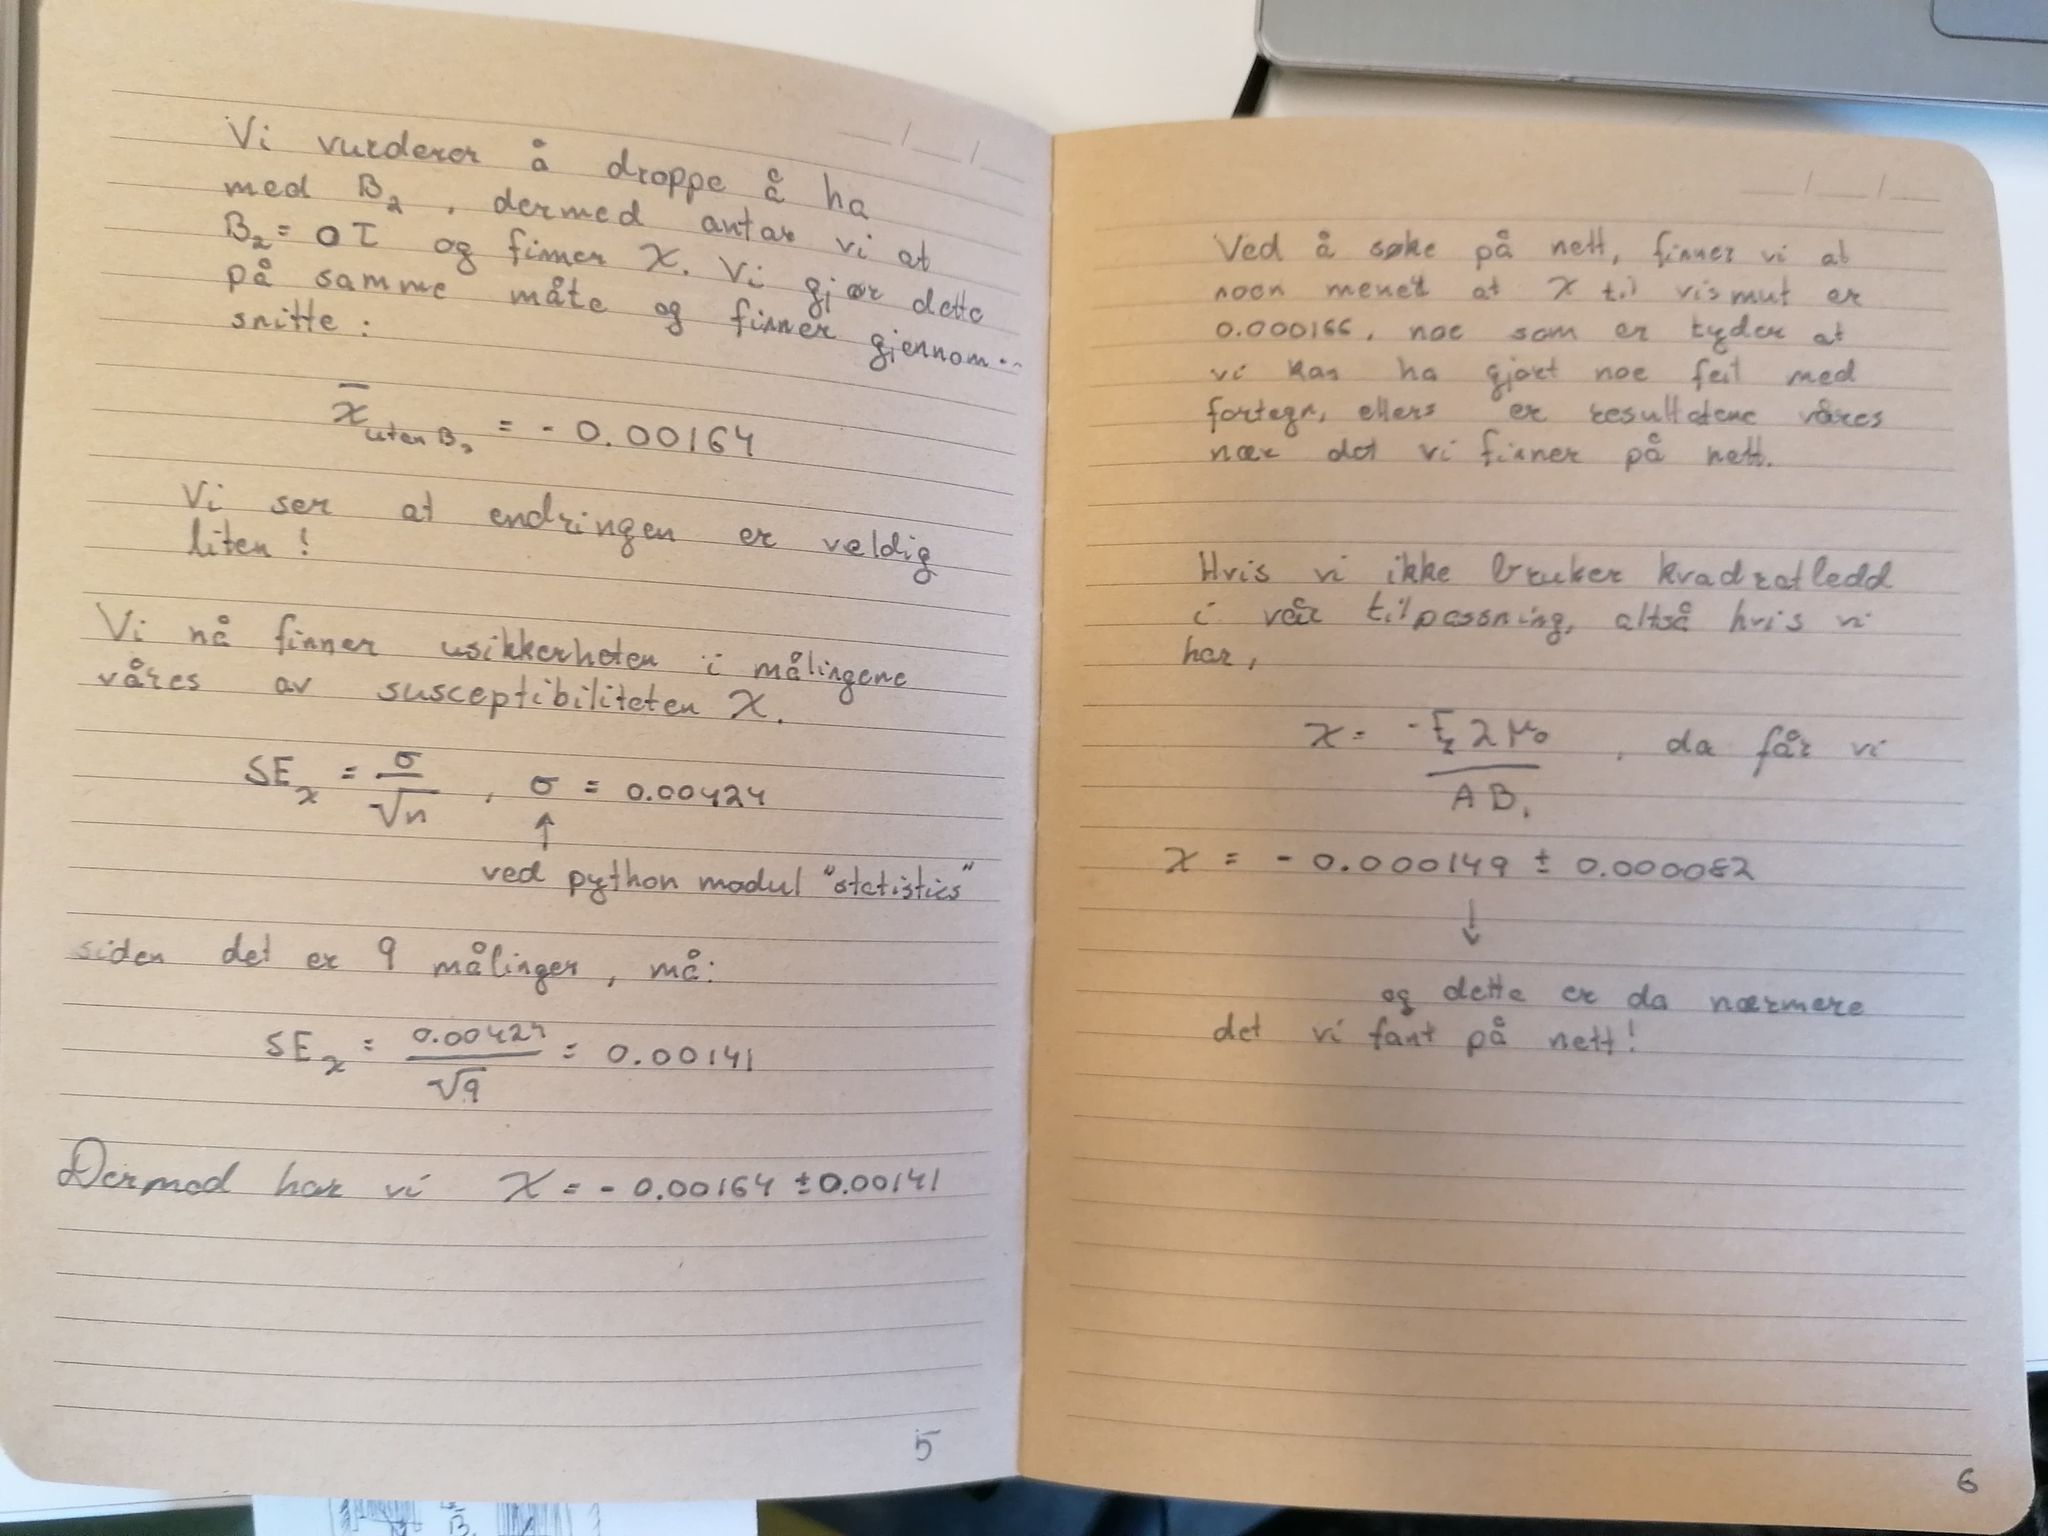 Vi vurderer å droppe å ha
med B₂, dermed antar vi at
B₂ = 0T og finner χ. Vi gjør dette
på samme måte og finner gjennom--
snitte:
χ̅ uten B₂ = - 0.00164
Vi ser at endringen er veldig
liten!
Vi nå finner usikkerheten i målingene
våres av susceptibiliteten χ.
SE_χ = σ/√n , σ = 0.00424
↑
ved python modul "statistics"
siden det er 9 målinger, må:
SE_χ = 0.00424/√9 = 0.00141
Dermed har vi χ = - 0.00164 ± 0.00141
5
Ved å søke på nett, finner vi at
noen menet at χ til vismut er
0.000166, noe som er tyder at
vi kan ha gjort noe feil med
fortegn, ellers er resultatene våres
nær det vi finner på nett.
Hvis vi ikke bruker kvadratledd
i vår tilpassning, altså hvis vi
har,
χ = -F_z 2 μ₀ / A B₁ , da får vi
χ = - 0.000149 ± 0.000082
↓
og dette er da nærmere
det vi fant på nett!
6
B₁